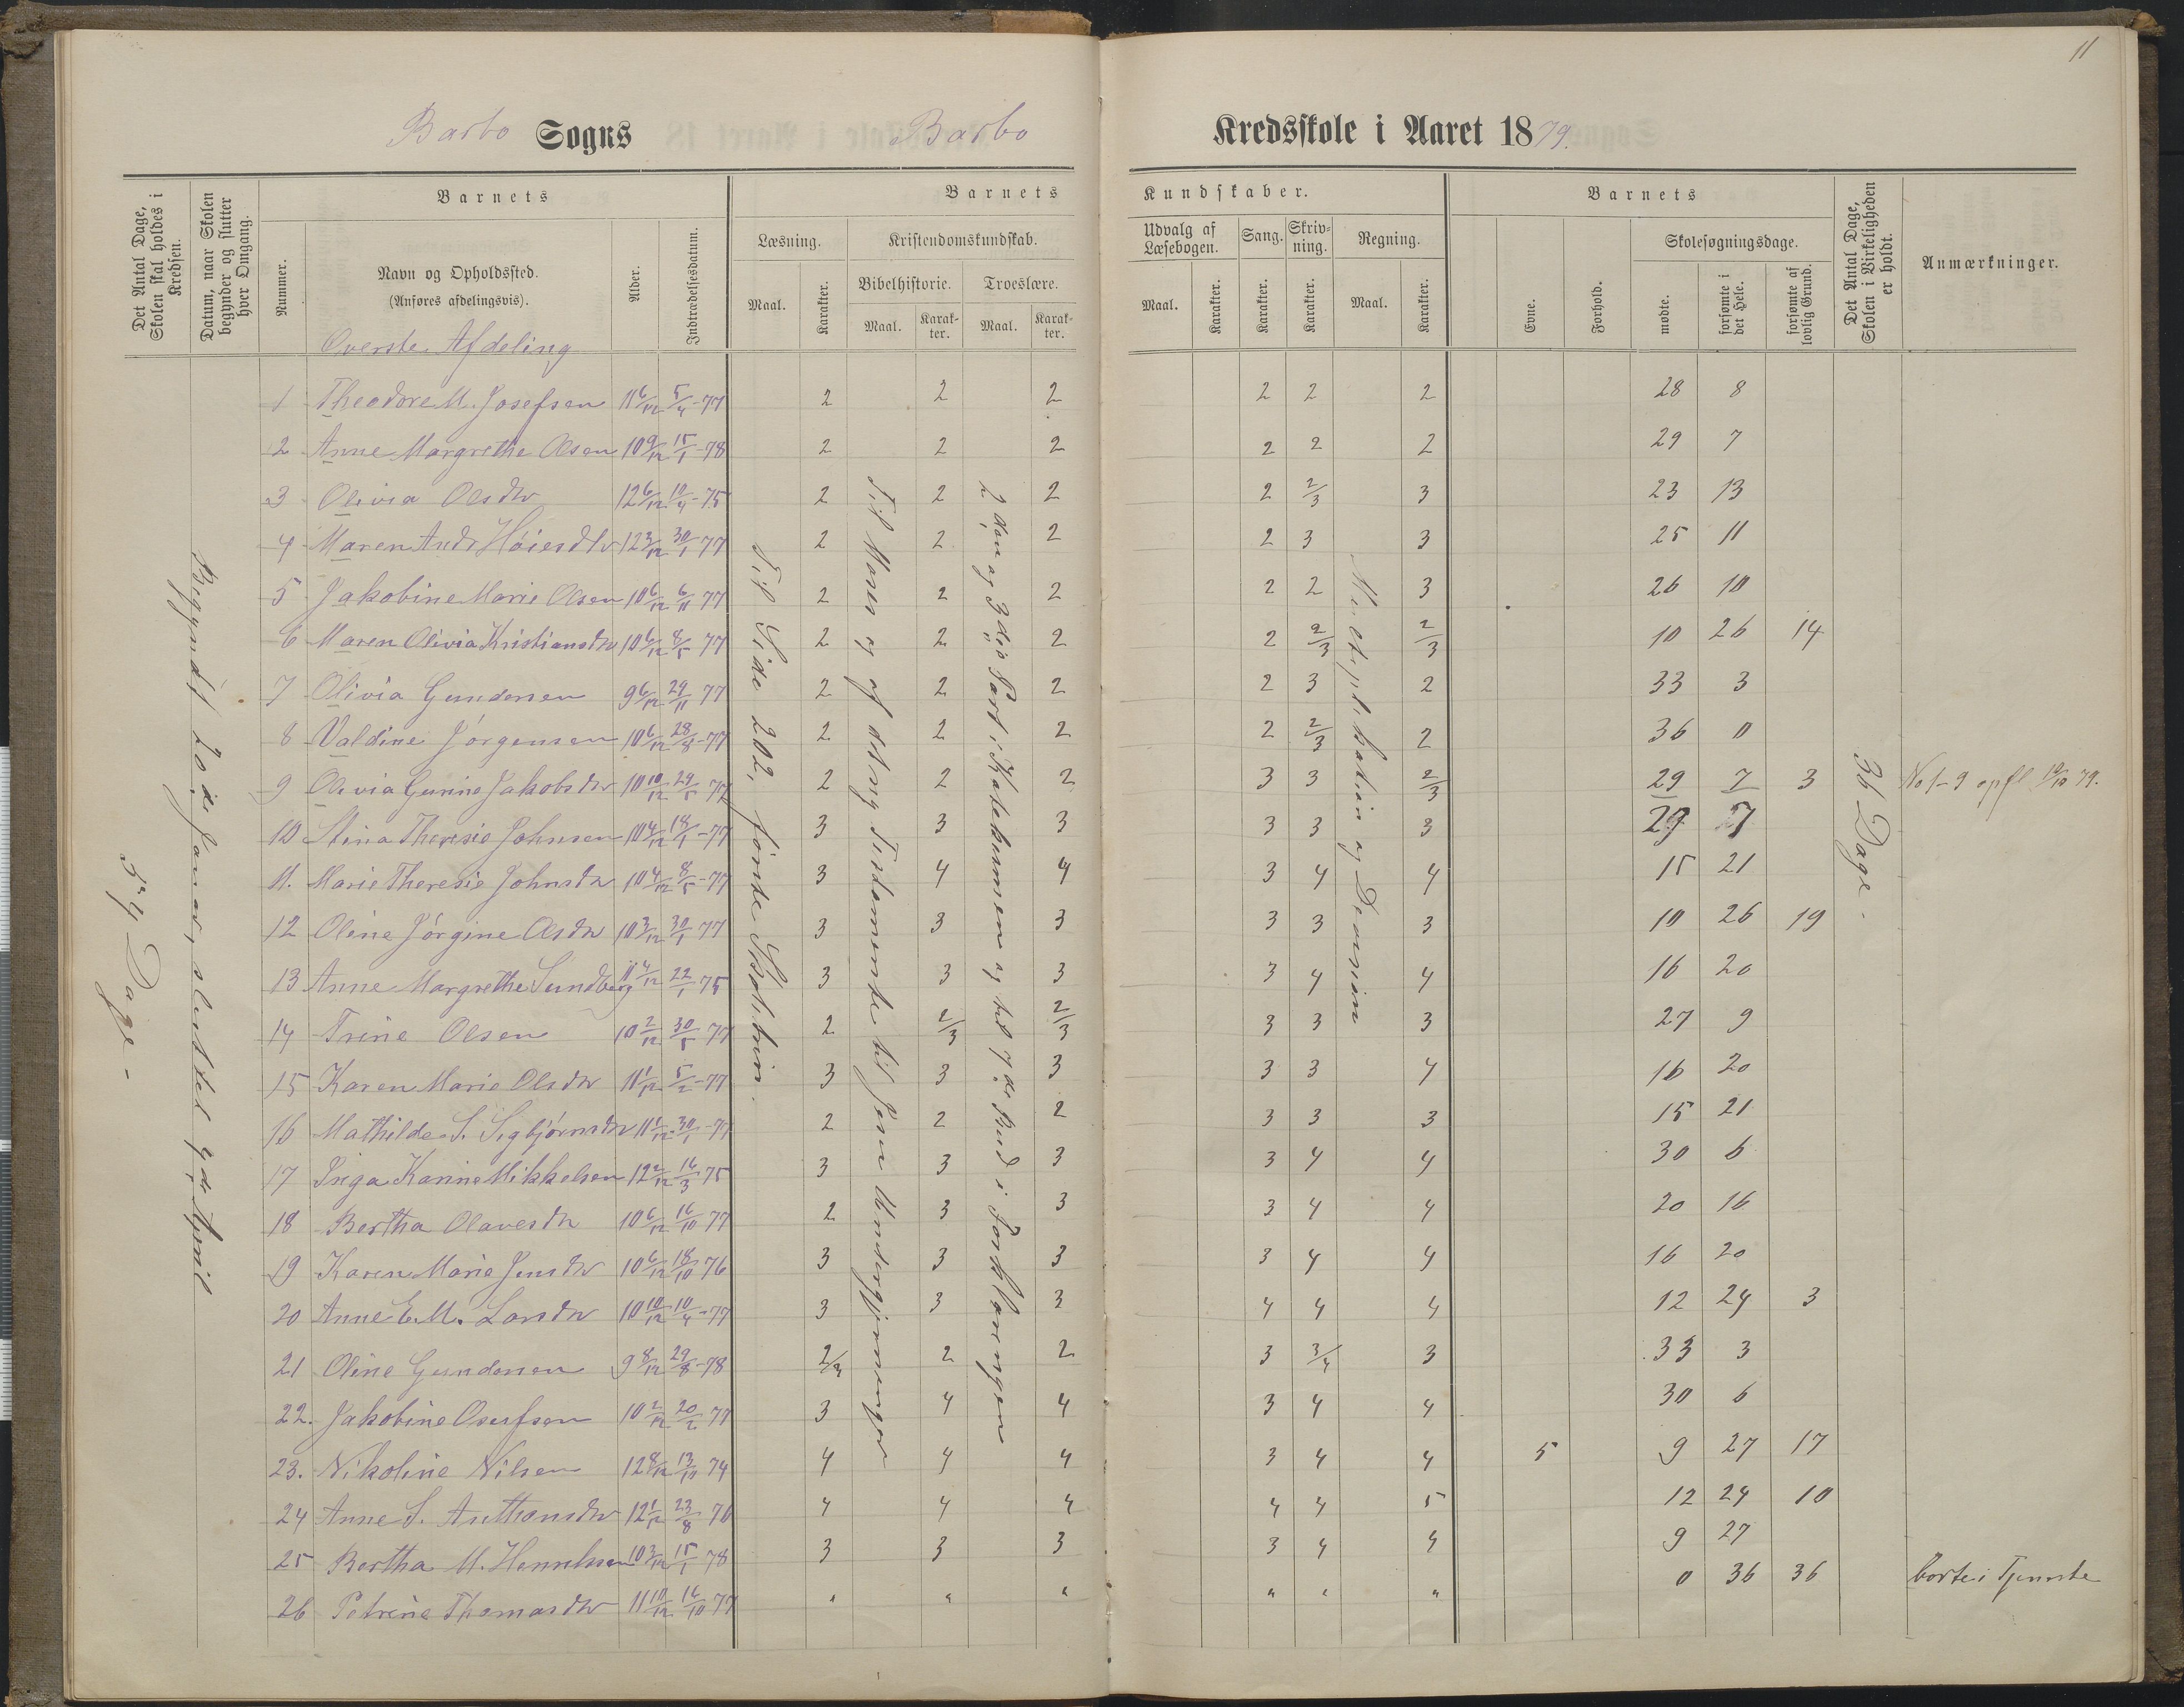 11
Barbo Sogns Barbo Kredsskole i Aaret 1879.
Det Antal Dage, Skolen skal holdes i Kredsen.
Datum, naar Skolen begynder og slutter hver Omgang.
Barnets
Nummer.
Navn og Opholdssted.
(Anføres afdelingsvis).
Alder.
Indtrædelsesdatum.
Barnets Kundskaber.
Læsning.
Maal. Karakter.
Kristendomskundskab.
Bibelhistorie. Troeslære.
Maal. Karakter. Maal. Karakter.
Udvalg af Læsebogen.
Maal. Karakter.
Sang. Karakter.
Skrivning. Karakter.
Regning.
Maal. Karakter.
Barnets
Evne. Forhold.
Skolesøgningsdage.
mødte. forsømte i det Hele. forsømte af lovlig Grund.
Det Antal Dage, Skolen i Virkeligheden er holdt.
Anmærkninger.
Overste Afdeling
54 Dage.
Begyndt 20de Januar, sluttet 9de April
Til Side 202, første Skoletrin.
Til Moses og af det ny Testamente til Jesu Undergjerninger
2den og 3die Part i Katekismen og til 7de Bud i Forklaringen
Multiplikation og Division
36 Dage.
1 Theodore M. Josefsen 11 6/12 5/4-77 2 2 2 2 2 2 28 8
2 Anne Margrethe Olsen 10 9/12 15/1-78 2 2 2 2 2 2 29 7
3 Olivia Olsdtr 12 6/12 10/4-75 2 2 2 2 2/3 3 23 13
4 Maren Andr Høiesdtr 12 3/12 30/1 77 2 2 2 2 3 3 25 11
5 Jakobine Marie Olsen 10 6/12 6/11 77 2 2 2 2 2 3 26 10
6 Maren Olivia Kristiansdtr 10 6/12 8/5 77 2 2 2 2 2/3 2/3 10 26 14
7 Olivia Gundersen 9 6/12 29/11 77 2 2 2 2 3 2 33 3
8 Valdine Jørgensen 10 6/12 28/8-77 2 2 2 2 2/3 2 36 0
9 Olivia Gurine Jakobsdtr 10 10/12 29/5 77 2 2 2 3 3 2/3 29 7 3 No 1-9 opfl 10/10 79.
10 Stina Theresie Johnsen 10 4/12 18/1-77 3 3 3 3 3 3 29 7
11. Marie Theresie Johnsdtr 10 4/12 8/5-77 3 4 4 3 4 4 15 21
12 Oline Jørgine Olsdtr 10 3/12 30/1 77 3 3 3 3 3 3 10 26 19
13 Anne Margrethe Sundberg 11 4/12 22/1 75 3 3 3 3 4 4 16 20
14 Trine Olsen 10 2/12 30/5 77 2 2/3 2/3 3 3 3 27 9
15 Karen Marie Olsdtr 11 1/12 5/2-77 3 3 3 3 3 4 16 20
16 Mathilde S. Sigbjørnsdtr 11 6/12 30/1-77 2 2 2 3 3 3 15 21
17 Inga Karine Mikkelsen 12 2/12 16/3 75 3 3 3 3 4 4 30 6
18 Bertha Olavesdtr 10 6/12 16/10 77 2 3 3 3 4 4 20 16
19 Karen Marie Jensdtr 10 6/12 18/10 76 3 3 3 3 4 4 16 20
20 Anne E. M. Larsdtr 10 10/12 10/4-77 3 3 3 4 4 4 12 24 3
21 Oline Gundersen 9 8/12 29/8-78 2/3 2 2 3 3/4 3 33 3
22. Jakobine Osufsen 10 2/12 20/2 77 3 4 4 3 4 4 30 6
23. Nikoline Nilsen 12 8/12 13/10 74 4 4 4 3 4 4 5 9 27 17
24 Anne S. Anthonsdtr 12 1/12 23/8 76 4 4 4 4 4 5 12 24 10
25 Bertha M. Henriksen 10 3/12 15/1 78 3 3 3 3 4 4 9 27
26 Petrine Thomasdtr 11 10/12 16/10 77 " " " " " " 0 36 36 borte i Tjeneste